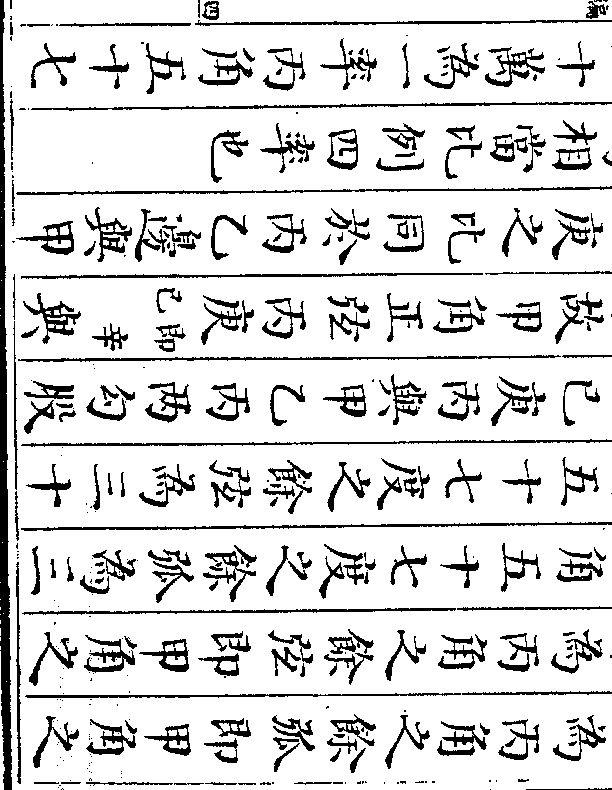 為丙角之餘弧即甲角之
為丙角之餘弦即甲角之
角五十七度之餘弧為三
五十七度之餘弦為三十
己庚丙與甲乙丙兩勾股
故甲角正弦丙庚即辛己與
庚之比同於丙乙邊與甲
相當比例四率也
十萬為一率丙角五十七
四